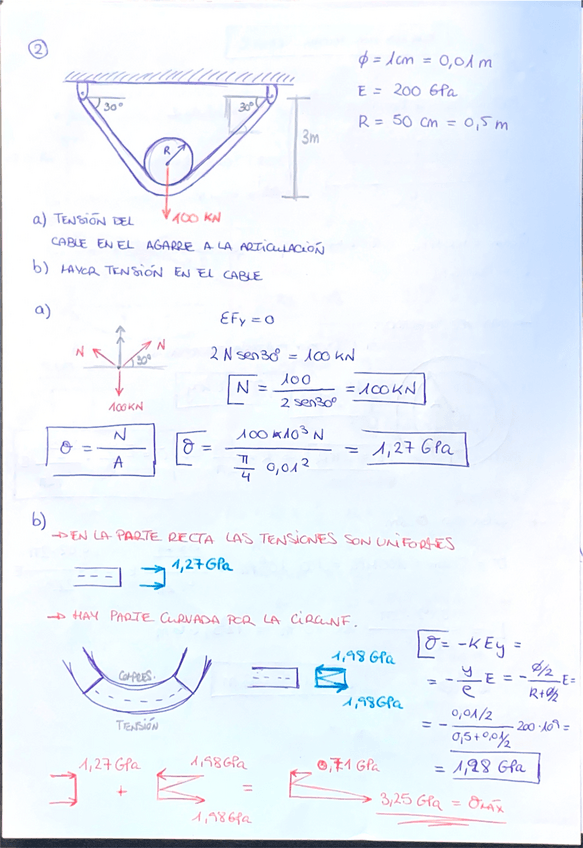 2
φ = 1cm = 0,01 m
E = 200 GPa
R = 50 cm = 0,5 m
30°
30°
3m
R
100 KN
a) TENSIÓN DEL
CABLE EN EL AGARRE A LA ARTICULACIÓN
b) MAYOR TENSIÓN EN EL CABLE
a)
N
N
30°
100KN
ΣFy = 0
2 N sen 30° = 100 KN
N = 100 / 2 sen30° = 100KN
σ = N / A
σ = 100 x 10³ N / π/4 0,01² = 1,27 GPa
b)
→ EN LA PARTE RECTA LAS TENSIONES SON UNIFORMES
1,27 GPa
→ HAY PARTE CURVADA POR LA CIRCUNF.
COMPRES.
TENSIÓN
1,98 GPa
1,98 GPa
σ = -K E y =
= - y/ρ E = - φ/2 / R+φ/2 E =
= - 0,01/2 / 0,5+0,01/2 200·10⁹ =
= 1,98 GPa
1,27 GPa
+
1,98 GPa
1,98 GPa
=
0,71 GPa
3,25 GPa = σmáx